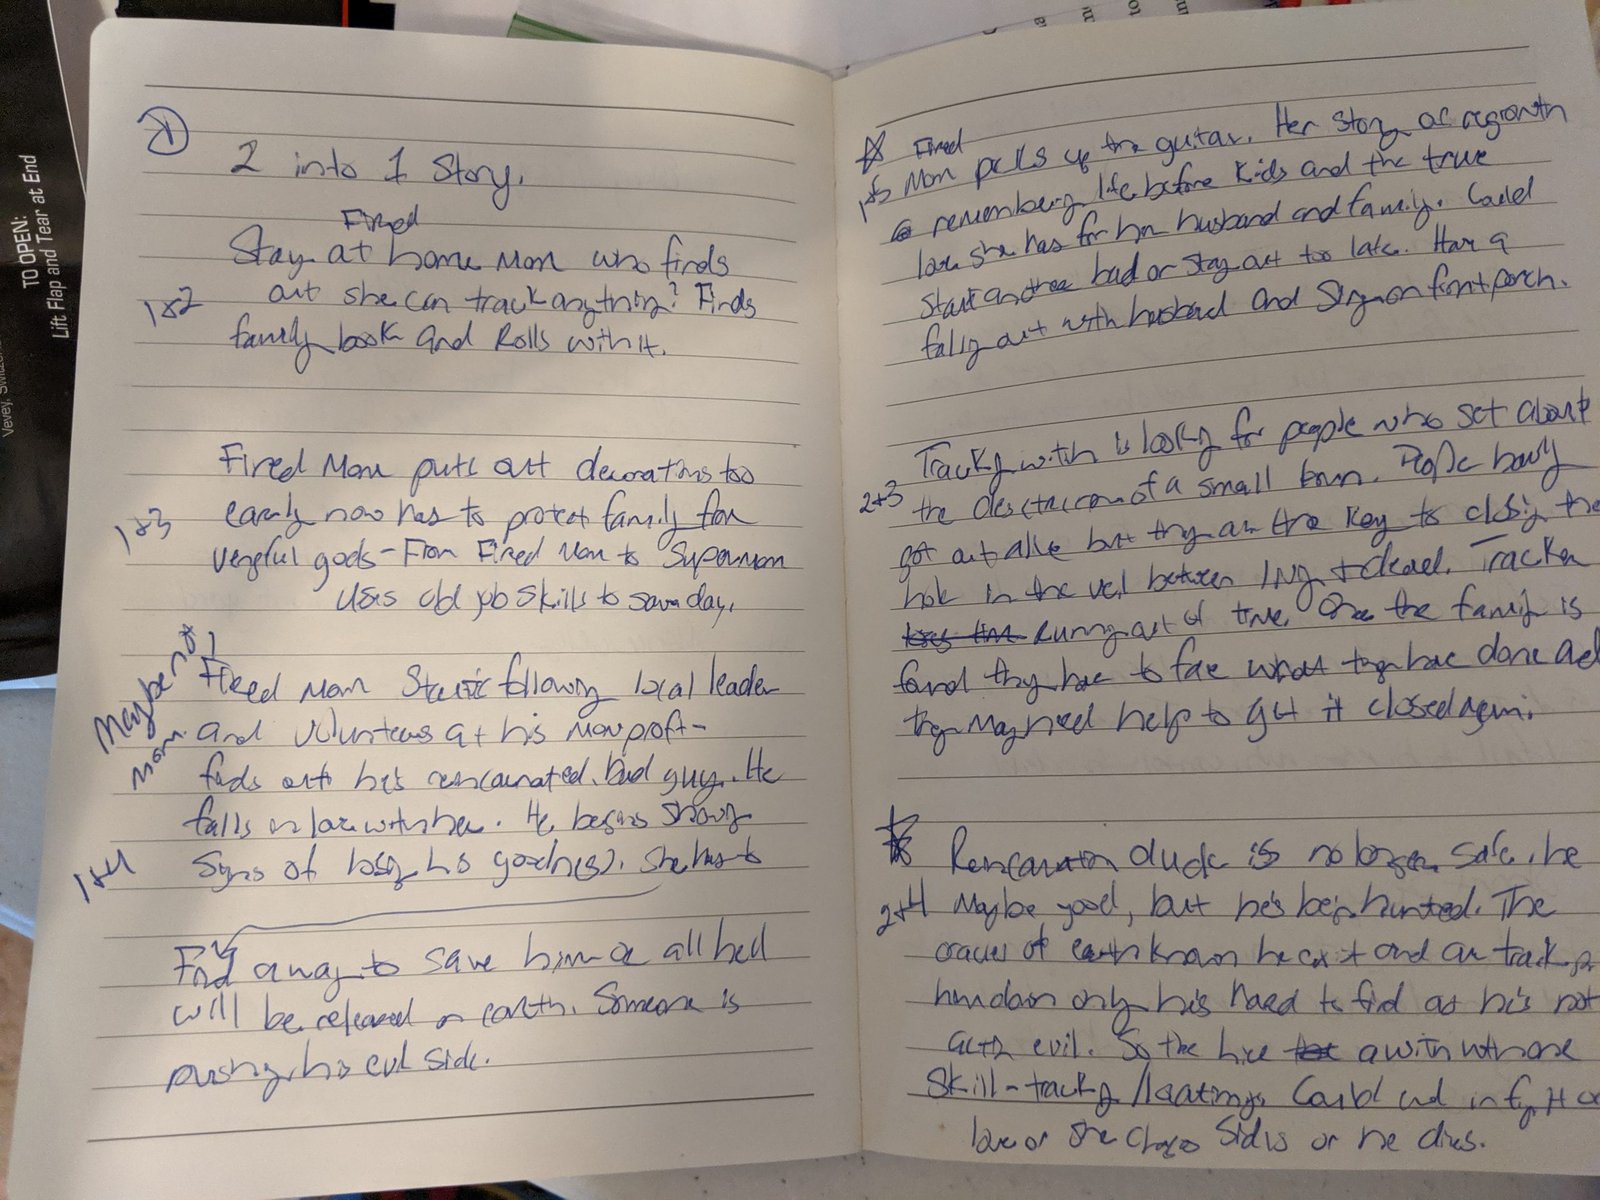 TO OPEN:
Lift Flap and Tear at End
Vevey,
2 into 1 Story.
Fired
Stay at home mom who finds
1&2 out she can track anything? Finds
family book and Rolls with it.
Fired Mom puts out decorations too
1&3 early now has to protect family from
vengeful gods - From Fired Mom to Supermom
Uses old job skills to save day.
Maybe not
mom
Fired mom Starts following local leader
and volunteers at his nonprofit -
finds out he's reincarnated bad guy. He
falls in love with her. He begins showing
1&4 Signs of losing his good(s). She has to
Find a way to save him or all hell
will be released on earth. Someone is
pushing his evil side.
Fired
1&5 Mom picks up the guitar. Her story of regrowth
remembering life before kids and the true
love she has for her husband and family. Could
start another bad or stay out too late. Have a
falling out with husband and sing on front porch.
Tracking witch is looking for people who set about
2&3 the destruction of a small town. People barely
got out alive but they are the key to closing the
hole in the veil between living & dead. Tracker
Running out of time. Once the family is
found they have to face what they have done and
they may need help to get it closed again.
Reincarnation dude is no longer safe. he
2&4 Maybe good, but he's being hunted. The
oracles of earth know he exist and are tracking
him down only he's hard to find as he's not
acting evil. So the hire a witch with one
Skill - tracking/locating. Could end in fight or
love or she chose sides or he dies.